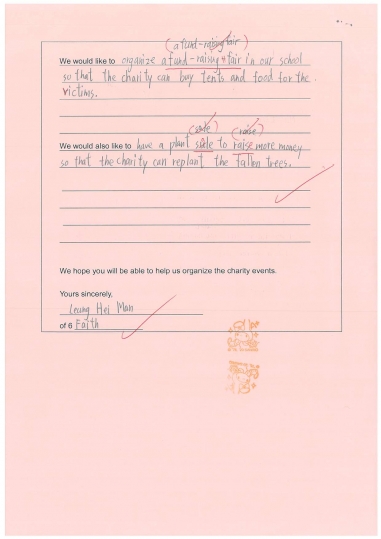 (a fund-raising fair)
We would like to organize a fund-raising fair in our school
so that the charity can buy tents and food for the
victims.
(sale) (raise)
We would also like to have a plant sale to raise more money
so that the charity can replant the fallen trees.
We hope you will be able to help us organize the charity events.
Yours sincerely,
Leung Hei Man
of 6 Faith